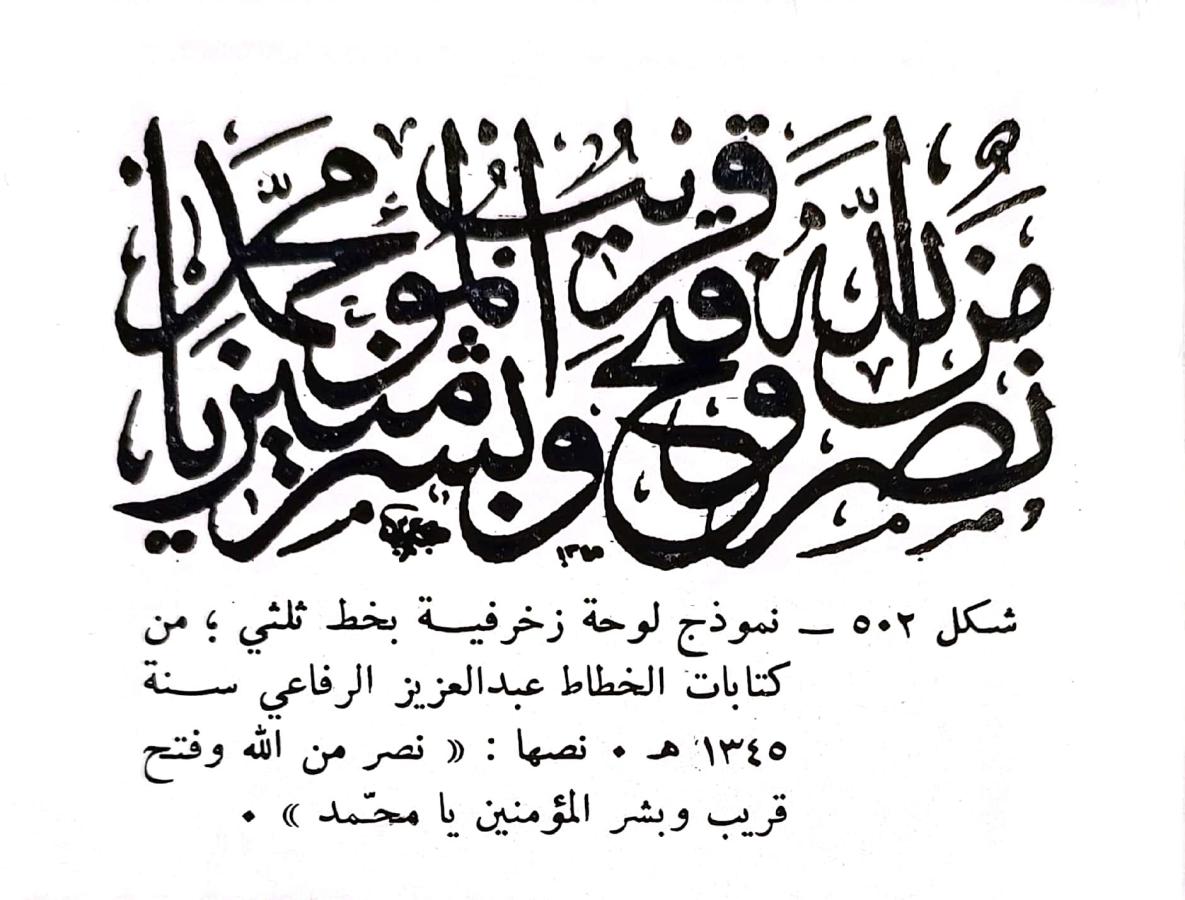 نصر من الله وفتح قريب وبشر المؤمنين يا محمد
١٣٤٥
شكل ٥٠٢ ــ نموذج لوحة زخرفيـــة بخط ثلثي ؛ من
كتابات الخطاط عبدالعزيز الرفاعي ســنة
١٣٤٥ هـ ٠ نصها : « نصر من الله وفتح
قريب وبشر المؤمنين يا محمّد » ٠